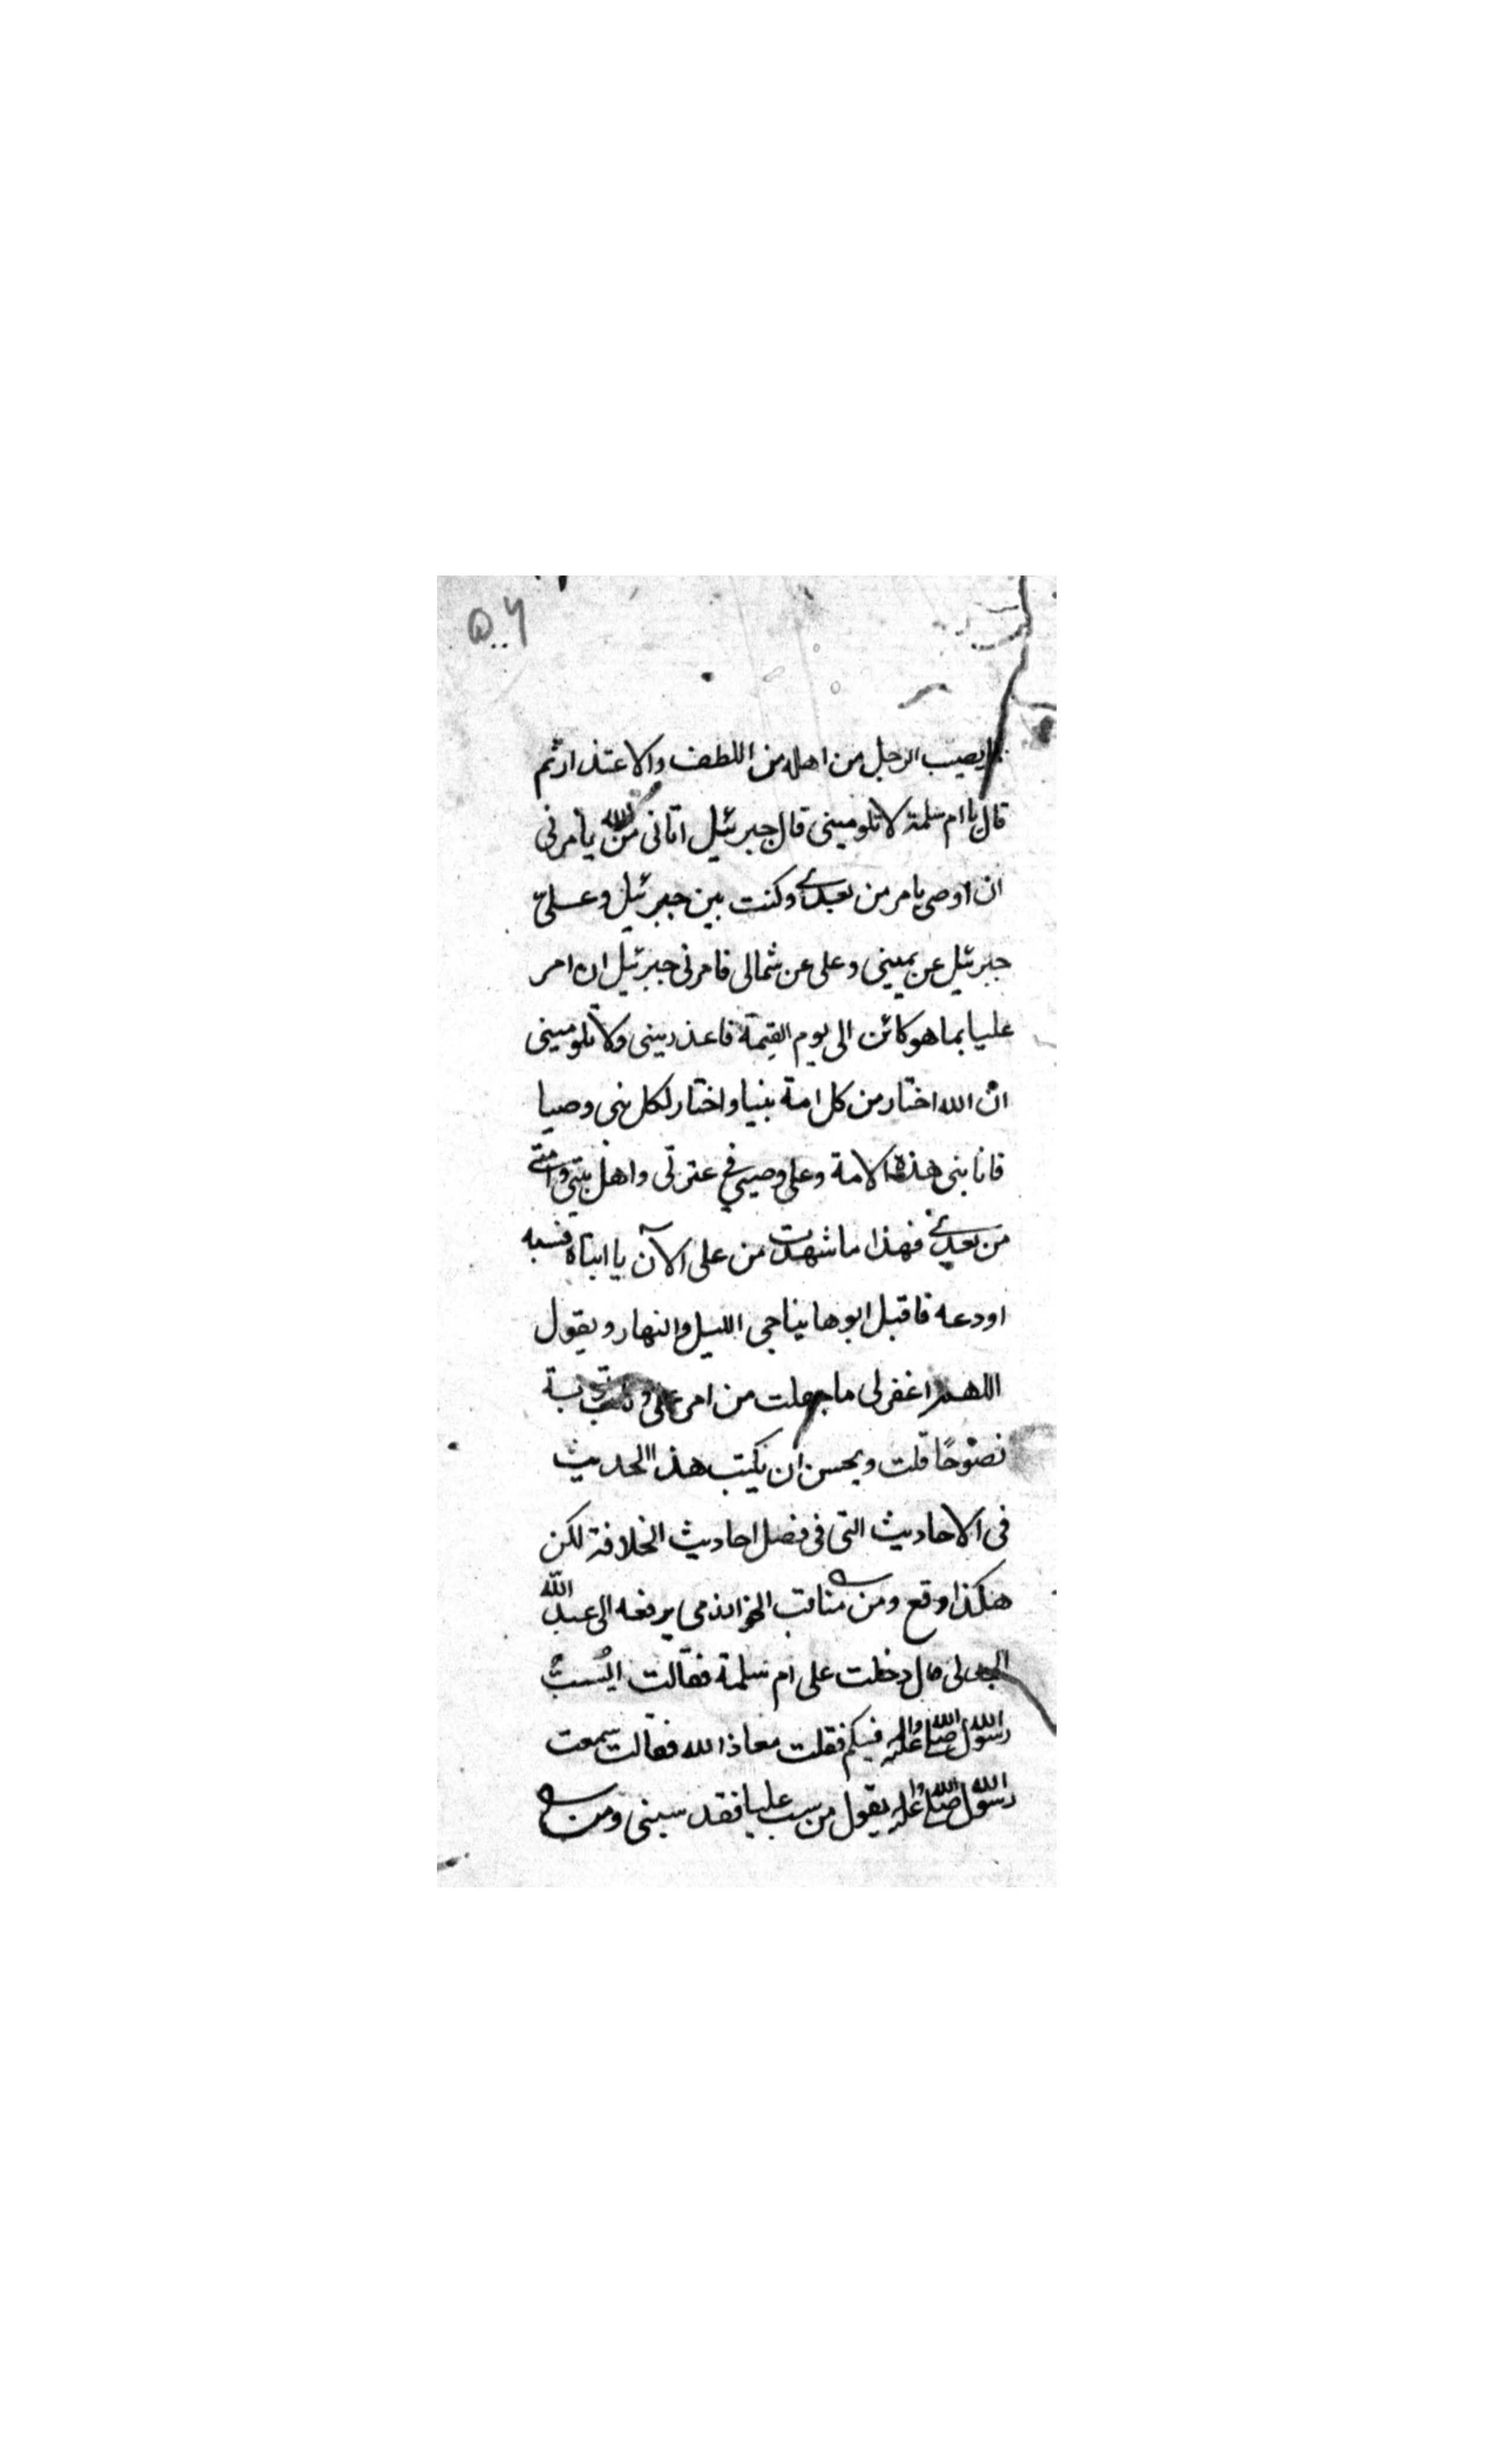 ما يصيب الرجل من اهله من اللطف والاعتذار ثم
قال يا ام سلمة لا تلوميني قال جبرئيل اتانى من الله يأمرنى
ان اوصى بامر من بعدى وكنت بين جبرئيل وعلىّ
جبرئيل عن يمينى وعلى عن شمالى فامرنى جبرئيل ان امر
عليا بما هو كائن الى يوم القيمة فاعذرينى ولا تلومينى
انّ الله اختار من كل امة نبيا واختار لكل نبى وصيا
فانا نبى هذه الامة وعلى وصيي في عترتى واهل بيتى وامتى
من بعدى فهذا ما شهدت من على الآن يا ابتاه فسبه
اودعه فاقبل ابوها يناجى الليل والنهار ويقول
اللهم اغفر لى ما جهلت من امر على وتب توبة
نصوحًا قلت ويحسن ان يكتب هذا الحديث
فى الاحاديث التى فى فضل احاديث الخلافة لكن
هكذا وقع ومن مناقب الخوارزمى يرفعه الى عبد الله
الجدلى قال دخلت على ام سلمة فقالت ايُسبّ
رسول الله صلى الله عليه وآله فيكم فقلت معاذ الله فقالت سمعت
رسول الله صلى الله عليه وآله يقول من سب عليا فقد سبنى ومن